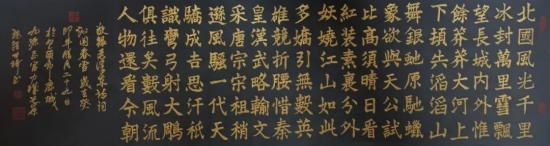 北國風光千里
冰封萬里雪飄
望長城内外惟
餘莽莽大河上
下頓失滔滔山
舞銀蛇原馳蠟
象欲與天公試
比高須晴日看
紅裝素裹分外
妖嬈江山如此
多嬌引無數英
雄競折腰惜秦
皇漢武略輸文
采唐宗宋祖稍
遜風騷一代天
驕成吉思汗祇
識彎弓射大鵰
俱往矣數風流
人物還看今朝
毛澤東詩詞
沁園春雪